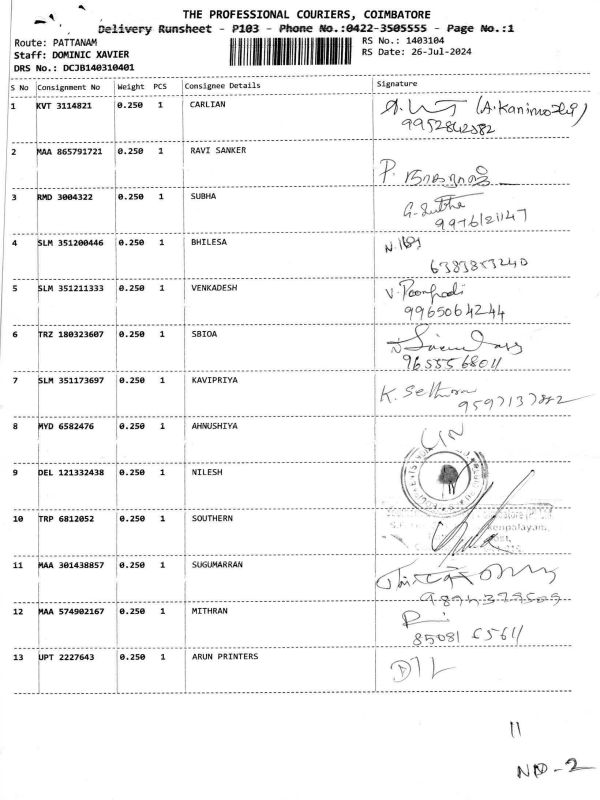 THE PROFESSIONAL COURIERS, COIMBATORE
Delivery Runsheet - P103 - Phone No.:0422-3505555 - Page No.:1
Route: PATTANAM
RS No.: 1403104
Staff: DOMINIC XAVIER
RS Date: 26-Jul-2024
DRS No.: DCJB140310401
S No Consignment No Weight PCS Consignee Details Signature
1 KVT 3114821 0.250 1 CARLIAN (A.Kanimozhi)
9952842382
2 MAA 865791721 0.250 1 RAVI SANKER
P.
3 RMD 3004322 0.250 1 SUBHA G. Subha
9976121147
4 SLM 351200446 0.250 1 BHILESA
6383853240
5 SLM 351211333 0.250 1 VENKADESH
9965064244
6 TRZ 180323607 0.250 1 SBIOA
9655568011
7 SLM 351173697 0.250 1 KAVIPRIYA K.
8 MYD 6582476 0.250 1 AHNUSHIYA
9 DEL 121332438 0.250 1 NILESH
10 TRP 6812052 0.250 1 SOUTHERN
11 MAA 301438857 0.250 1 SUGUMARRAN
12 MAA 574902167 0.250 1 MITHRAN
13 UPT 2227643 0.250 1 ARUN PRINTERS D/L
11
ND-2